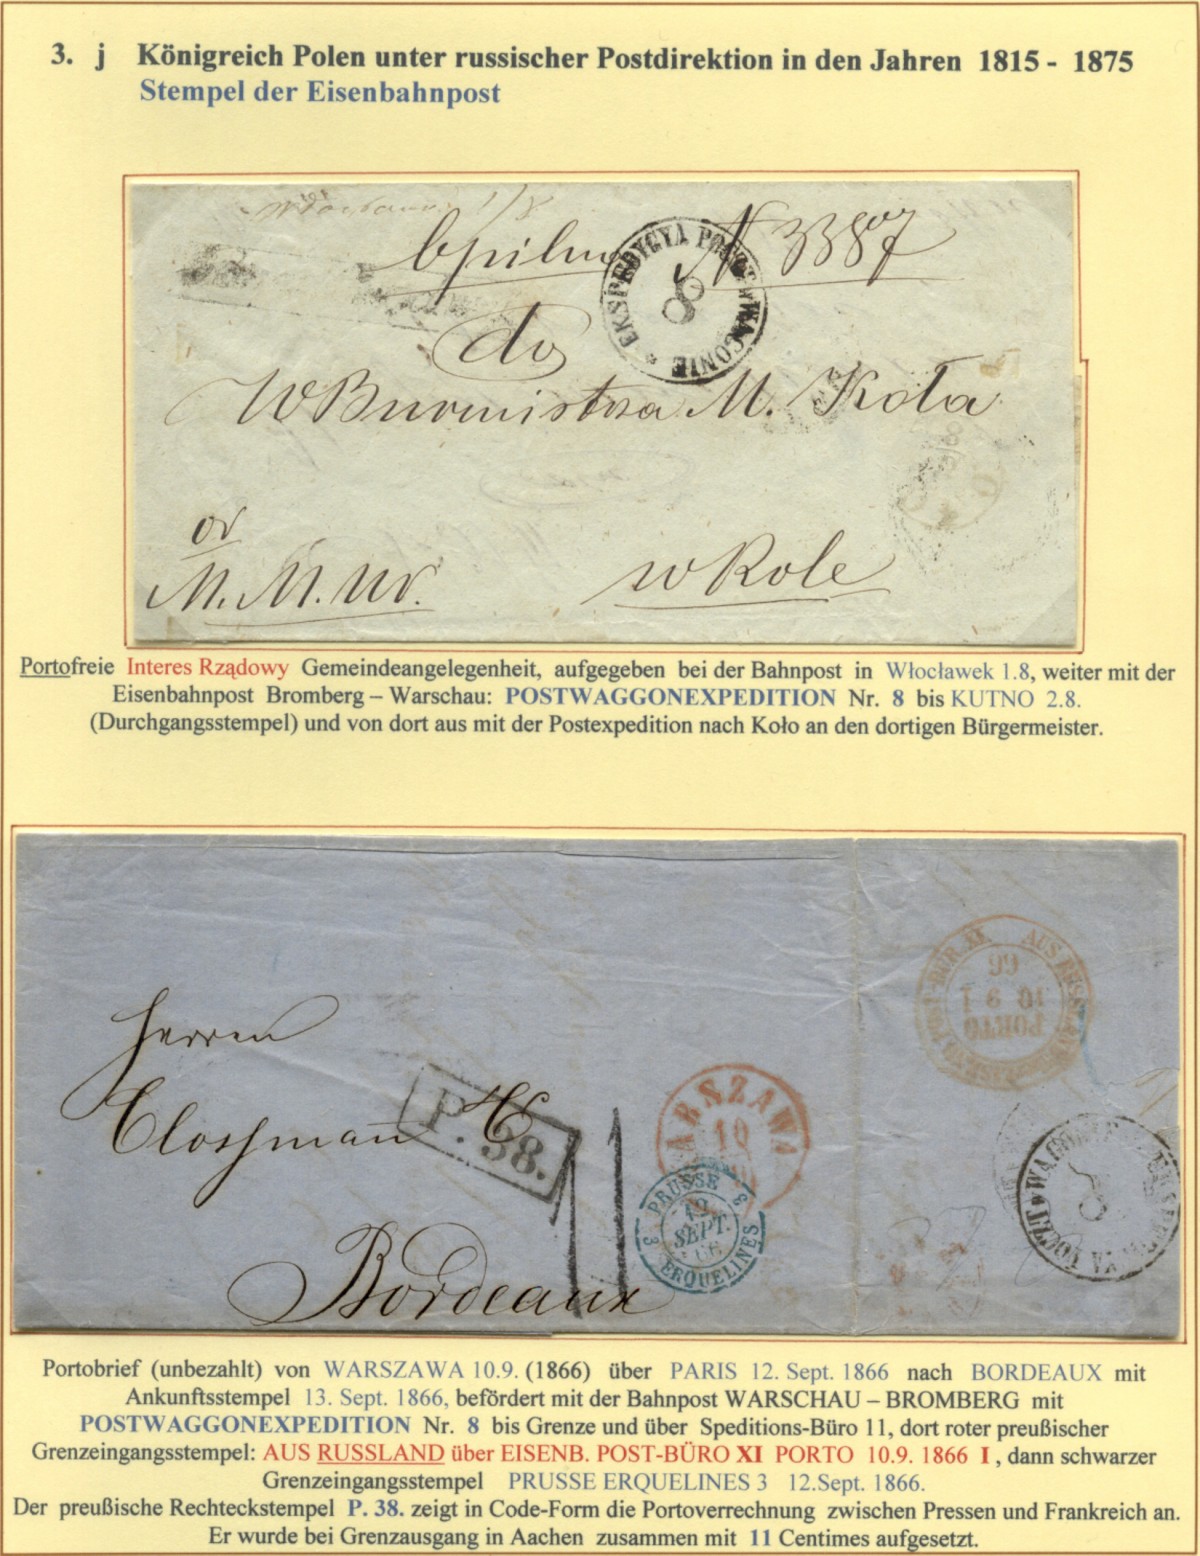 3. j Königreich Polen unter russischer Postdirektion in den Jahren 1815 - 1875
Stempel der Eisenbahnpost
1/8
bpilno N 3387
EKSPEDYCYA POCZT w WAGONIE
8
do
W Burmistrza M. Koła
od
M. M. Wł.
w Kole
Portofreie Interes Rządowy Gemeindeangelegenheit, aufgegeben bei der Bahnpost in Włocławek 1.8, weiter mit der
Eisenbahnpost Bromberg – Warschau: POSTWAGGONEXPEDITION Nr. 8 bis KUTNO 2.8.
(Durchgangsstempel) und von dort aus mit der Postexpedition nach Koło an den dortigen Bürgermeister.
AUS RUSS
POST-BÜR. XI.
PORTO
10 9 I
66
Herren
Clossman & C
P. 38.
11
WARSZAWA
10
PRUSSE
3 3
12
SEPT.
66
ERQUELINES
8
Bordeaux
Portobrief (unbezahlt) von WARSZAWA 10.9. (1866) über PARIS 12. Sept. 1866 nach BORDEAUX mit
Ankunftsstempel 13. Sept. 1866, befördert mit der Bahnpost WARSCHAU – BROMBERG mit
POSTWAGGONEXPEDITION Nr. 8 bis Grenze und über Speditions-Büro 11, dort roter preußischer
Grenzeingangsstempel: AUS RUSSLAND über EISENB. POST-BÜRO XI PORTO 10.9. 1866 I , dann schwarzer
Grenzeingangsstempel PRUSSE ERQUELINES 3 12.Sept. 1866.
Der preußische Rechteckstempel P. 38. zeigt in Code-Form die Portoverrechnung zwischen Pressen und Frankreich an.
Er wurde bei Grenzausgang in Aachen zusammen mit 11 Centimes aufgesetzt.